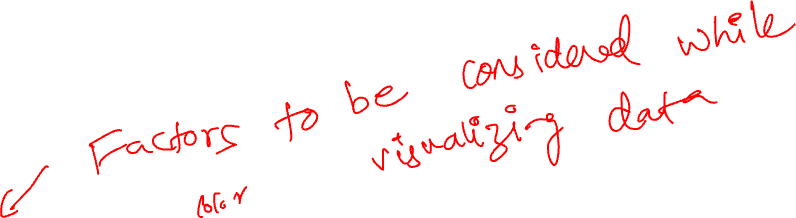 Factors to be considered while
visualizing data
color